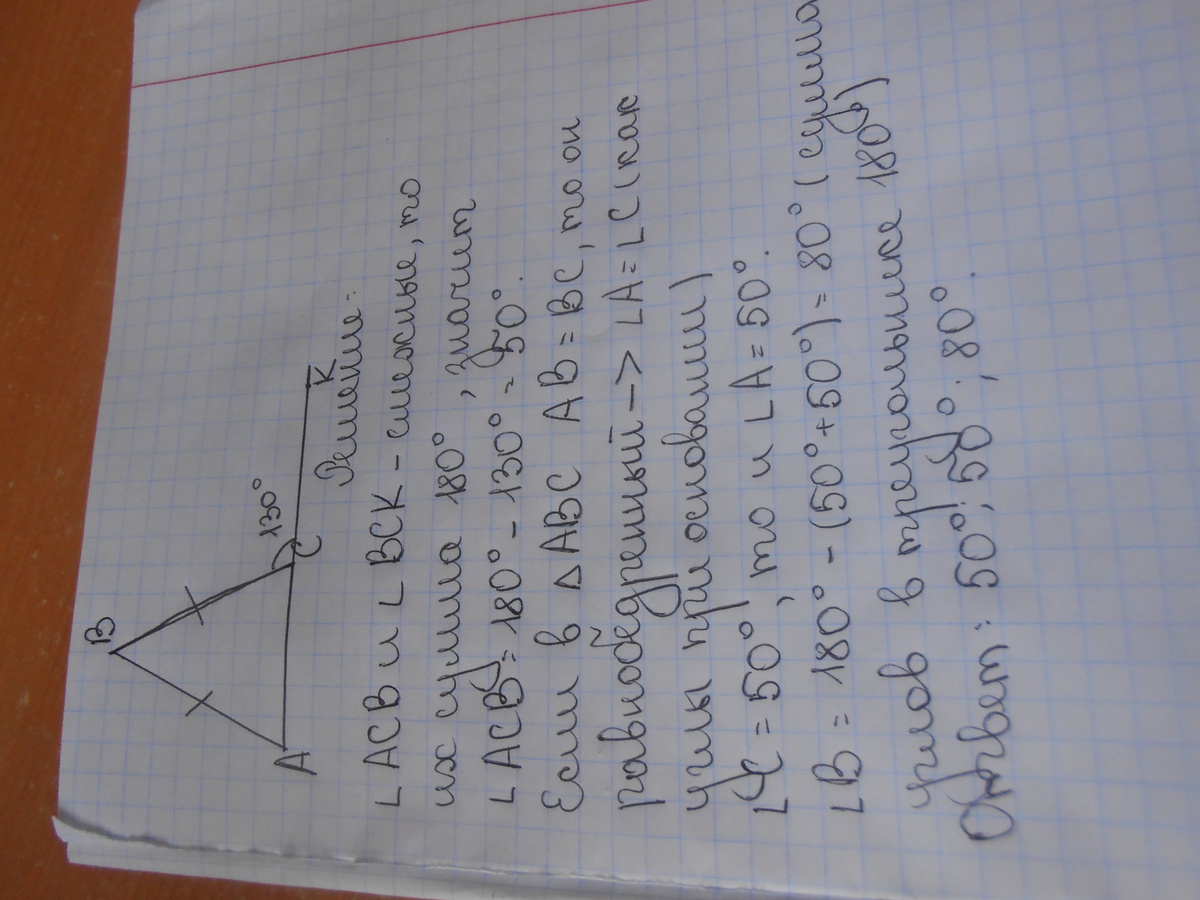 B
130°
A
C
K
Решение:
∟ACB и ∟BCK - смежные, то
их сумма 180°, значит
∟ACB = 180° - 130° = 50°.
Если в △ABC AB = BC, то он
равнобедренный -> ∟A = ∟C (как
углы при основании)
∟C = 50°, то и ∟A = 50°.
∟B = 180° - (50° + 50°) = 80° (сумма
углов в треугольнике 180°)
Ответ: 50°; 50°; 80°.